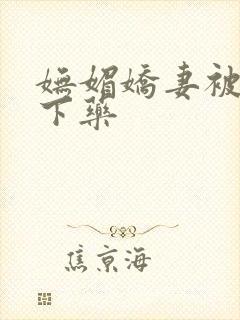 嫵媚嬌妻被
下藥
焦京海